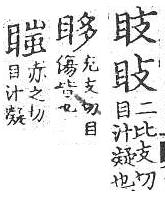 二比支切
目汁凝也
眵
充支切目
傷眥也
赤之切
目汁凝